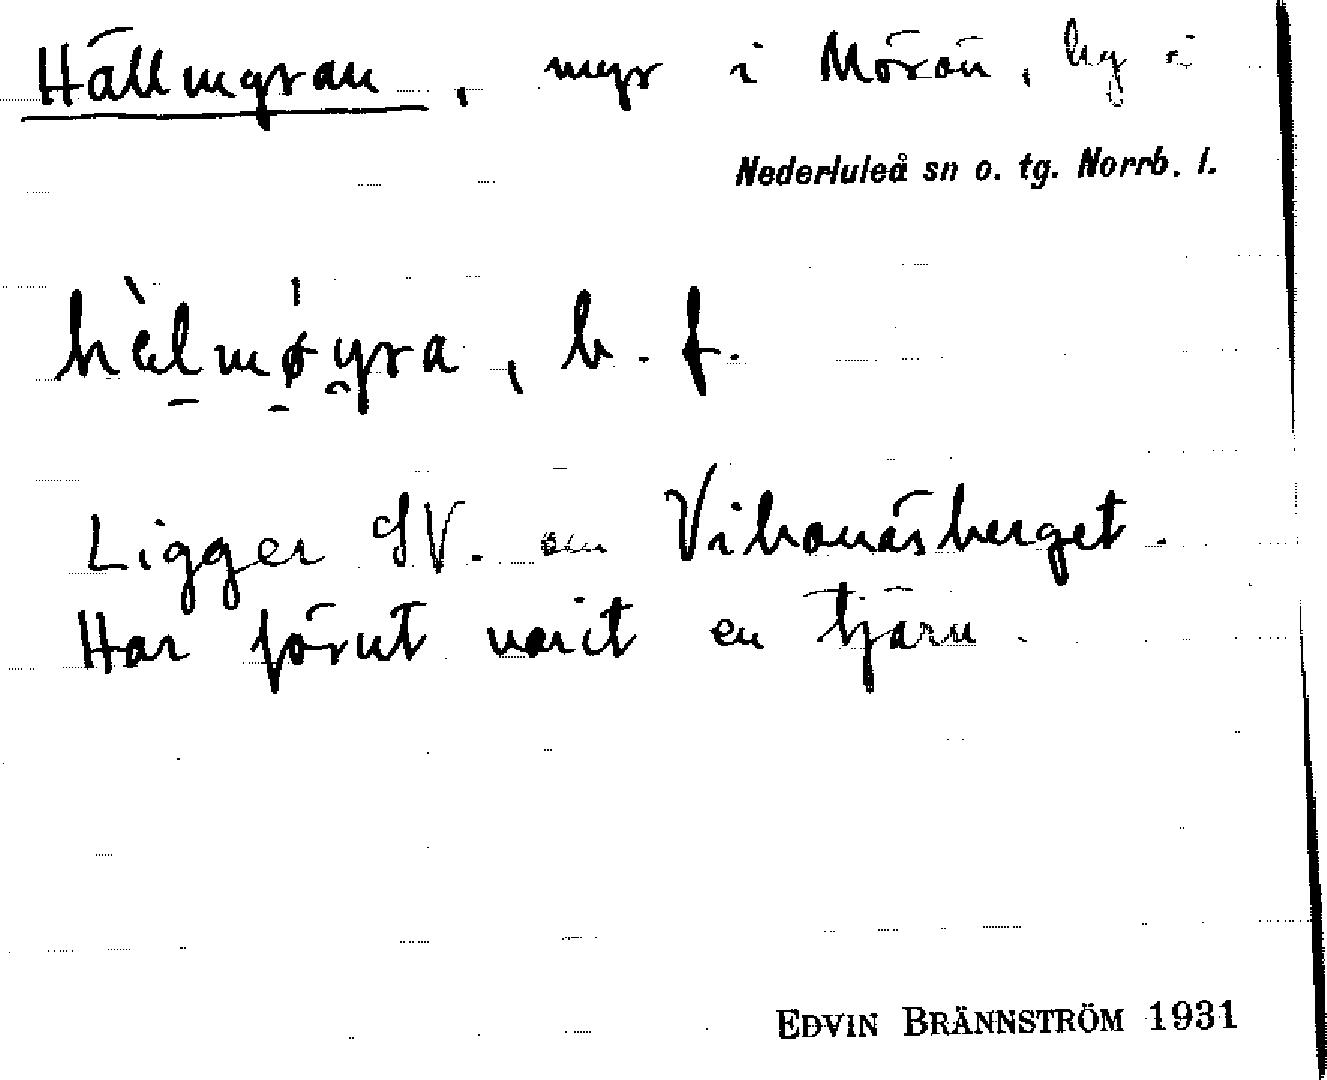 Hällmyran, myr i Mörön, by i
Nederluleå sn o. tg. Norrb. l.
hèlmǿyra, b. f.
Ligger SV. om Vibonäsberget.
Har förut varit en tjärn.
EDVIN BRÄNNSTRÖM 1931